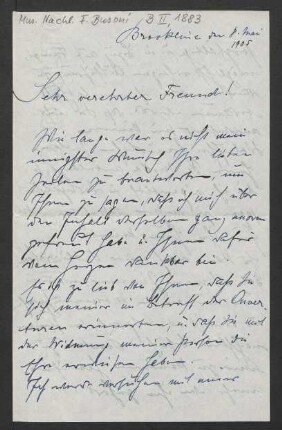 Mus. Nachl. F. Busoni B II, 1883
Brookline den 8. Mai
1905
Sehr verehrter Freund!
Wie lange war es nicht mein
innigster Wunsch Ihre lieben
Zeilen zu beantworten, um
Ihnen zu sagen, daß ich mich über
den Inhalt derselben ganz enorm
gefreut habe u. Ihnen dafür
von Herzen dankbar bin.
lieb von Ihnen, daß Sie
sich meiner in Betreff der Ouver
turen erinnerten, u. daß Sie mit
der Widmung meiner Person die
Ehre erwiesen haben.
Ich werde versuchen mit unser